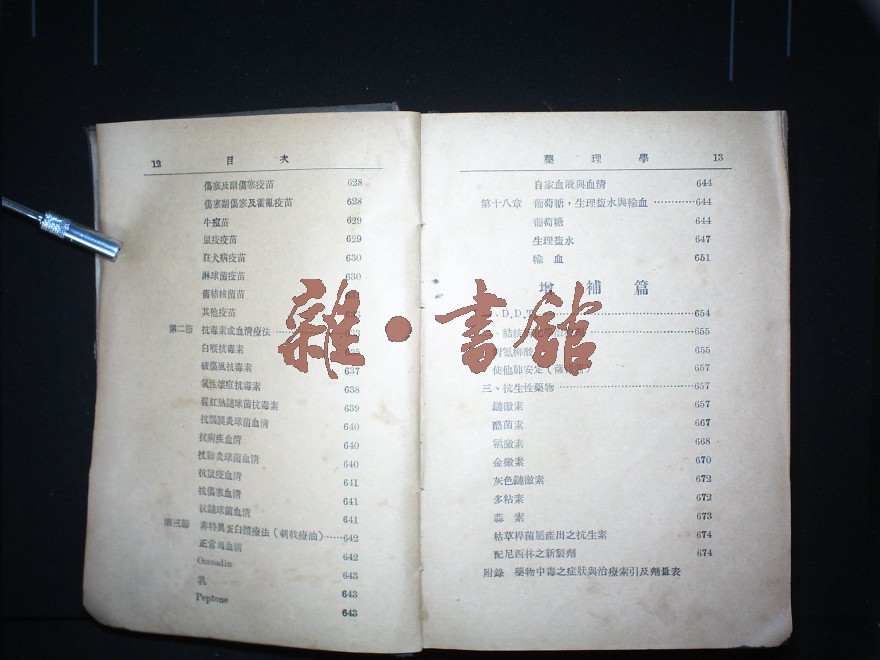 12 目次
傷寒及副傷寒疫苗 628
傷寒副傷寒及霍亂疫苗 628
牛痘苗 629
鼠疫疫苗 629
狂犬病疫苗 630
淋球菌疫苗 630
舊結核菌苗
其他疫苗
第二節 抗毒素或血清療法
白喉抗毒素
破傷風抗毒素 637
氣性壞疽抗毒素 638
猩紅熱鏈球菌抗毒素 639
抗腦膜炎球菌血清 640
抗痢疾血清 640
抗肺炎球菌血清 640
抗鼠疫血清 641
抗傷寒血清 641
抗鏈球菌血清 641
第三節 非特異蛋白體療法（刺戟療油）……642
正常馬血清 642
Omnadin 643
乳 643
Peptone 643
藥理學 13
自家血液與血清 644
第十八章 葡萄糖，生理鹽水與輸血…………644
葡萄糖 644
生理鹽水 647
輸血 651
增補篇
一、D.D.T. 654
655
655
657
三、抗生性藥物……………………………657
鏈黴素 657
酷菌素 667
氯黴素 668
金黴素 670
灰色鏈黴素 672
多粘素 672
蒜素 673
枯草桿菌屬產出之抗生素 674
配尼西林之新製劑 674
附錄 藥物中毒之症狀與治療索引及劑量表
雜·書館